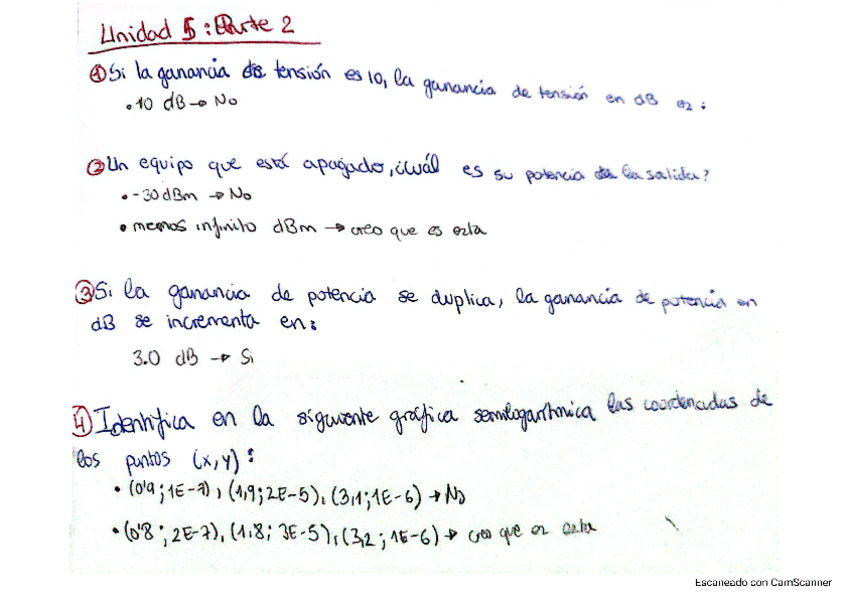 Unidad 5: Parte 2
① Si la ganancia de tensión es 10, la ganancia de tensión en dB es:
• 10 dB → No
② Un equipo que está apagado, ¿cuál es su potencia de la salida?
• -30 dBm → No
• menos infinito dBm → creo que es esta
③ Si la ganancia de potencia se duplica, la ganancia de potencia en
dB se incrementa en:
3.0 dB → Si
④ Identifica en la siguiente gráfica semilogarítmica las coordenadas de
los puntos (x,y):
• (0'9; 1E-7), (1,9; 2E-5), (3,1; 1E-6) → No
• (0'8; 2E-7), (1,8; 3E-5), (3,2; 1E-6) → creo que es esta
Escaneado con CamScanner